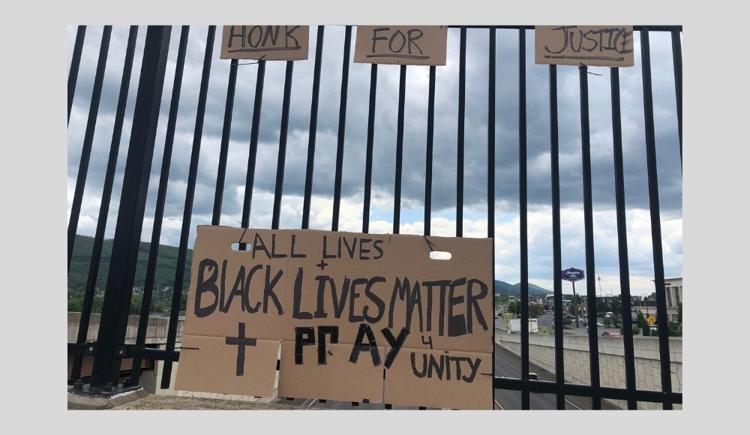 HONK FOR JUSTICE
ALL LIVES
+
BLACK LIVES MATTER
PRAY 4
UNITY